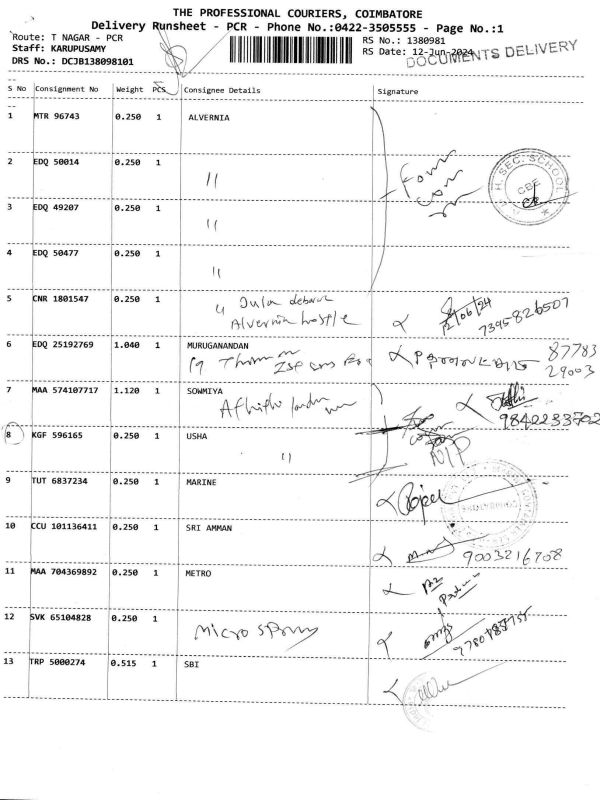 THE PROFESSIONAL COURIERS, COIMBATORE
Delivery Runsheet - PCR - Phone No.:0422-3505555 - Page No.:1
Route: T NAGAR - PCR
RS No.: 1380981
Staff: KARUPUSAMY
RS Date: 12-Jun-2024
DRS No.: DCJB138098101
DOCUMENTS DELIVERY
S No Consignment No Weight PCS Consignee Details Signature
1 MTR 96743 0.250 1 ALVERNIA
Four
H. SEC. SCHOOL
CBE
2 EDQ 50014 0.250 1 "
3 EDQ 49207 0.250 1 "
4 EDQ 50477 0.250 1 "
5 CNR 1801547 0.250 1 "
Alvernia
12/06/24
7395826507
6 EDQ 25192769 1.040 1 MURUGANANDAN
19
87783
29003
7 MAA 574107717 1.120 1 SOWMIYA
9842233702
8 KGF 596165 0.250 1 USHA
"
N/P
9 TUT 6837234 0.250 1 MARINE
10 CCU 101136411 0.250 1 SRI AMMAN
9003216708
11 MAA 704369892 0.250 1 METRO
12 SVK 65104828 0.250 1
Micro
13 TRP 5000274 0.515 1 SBI